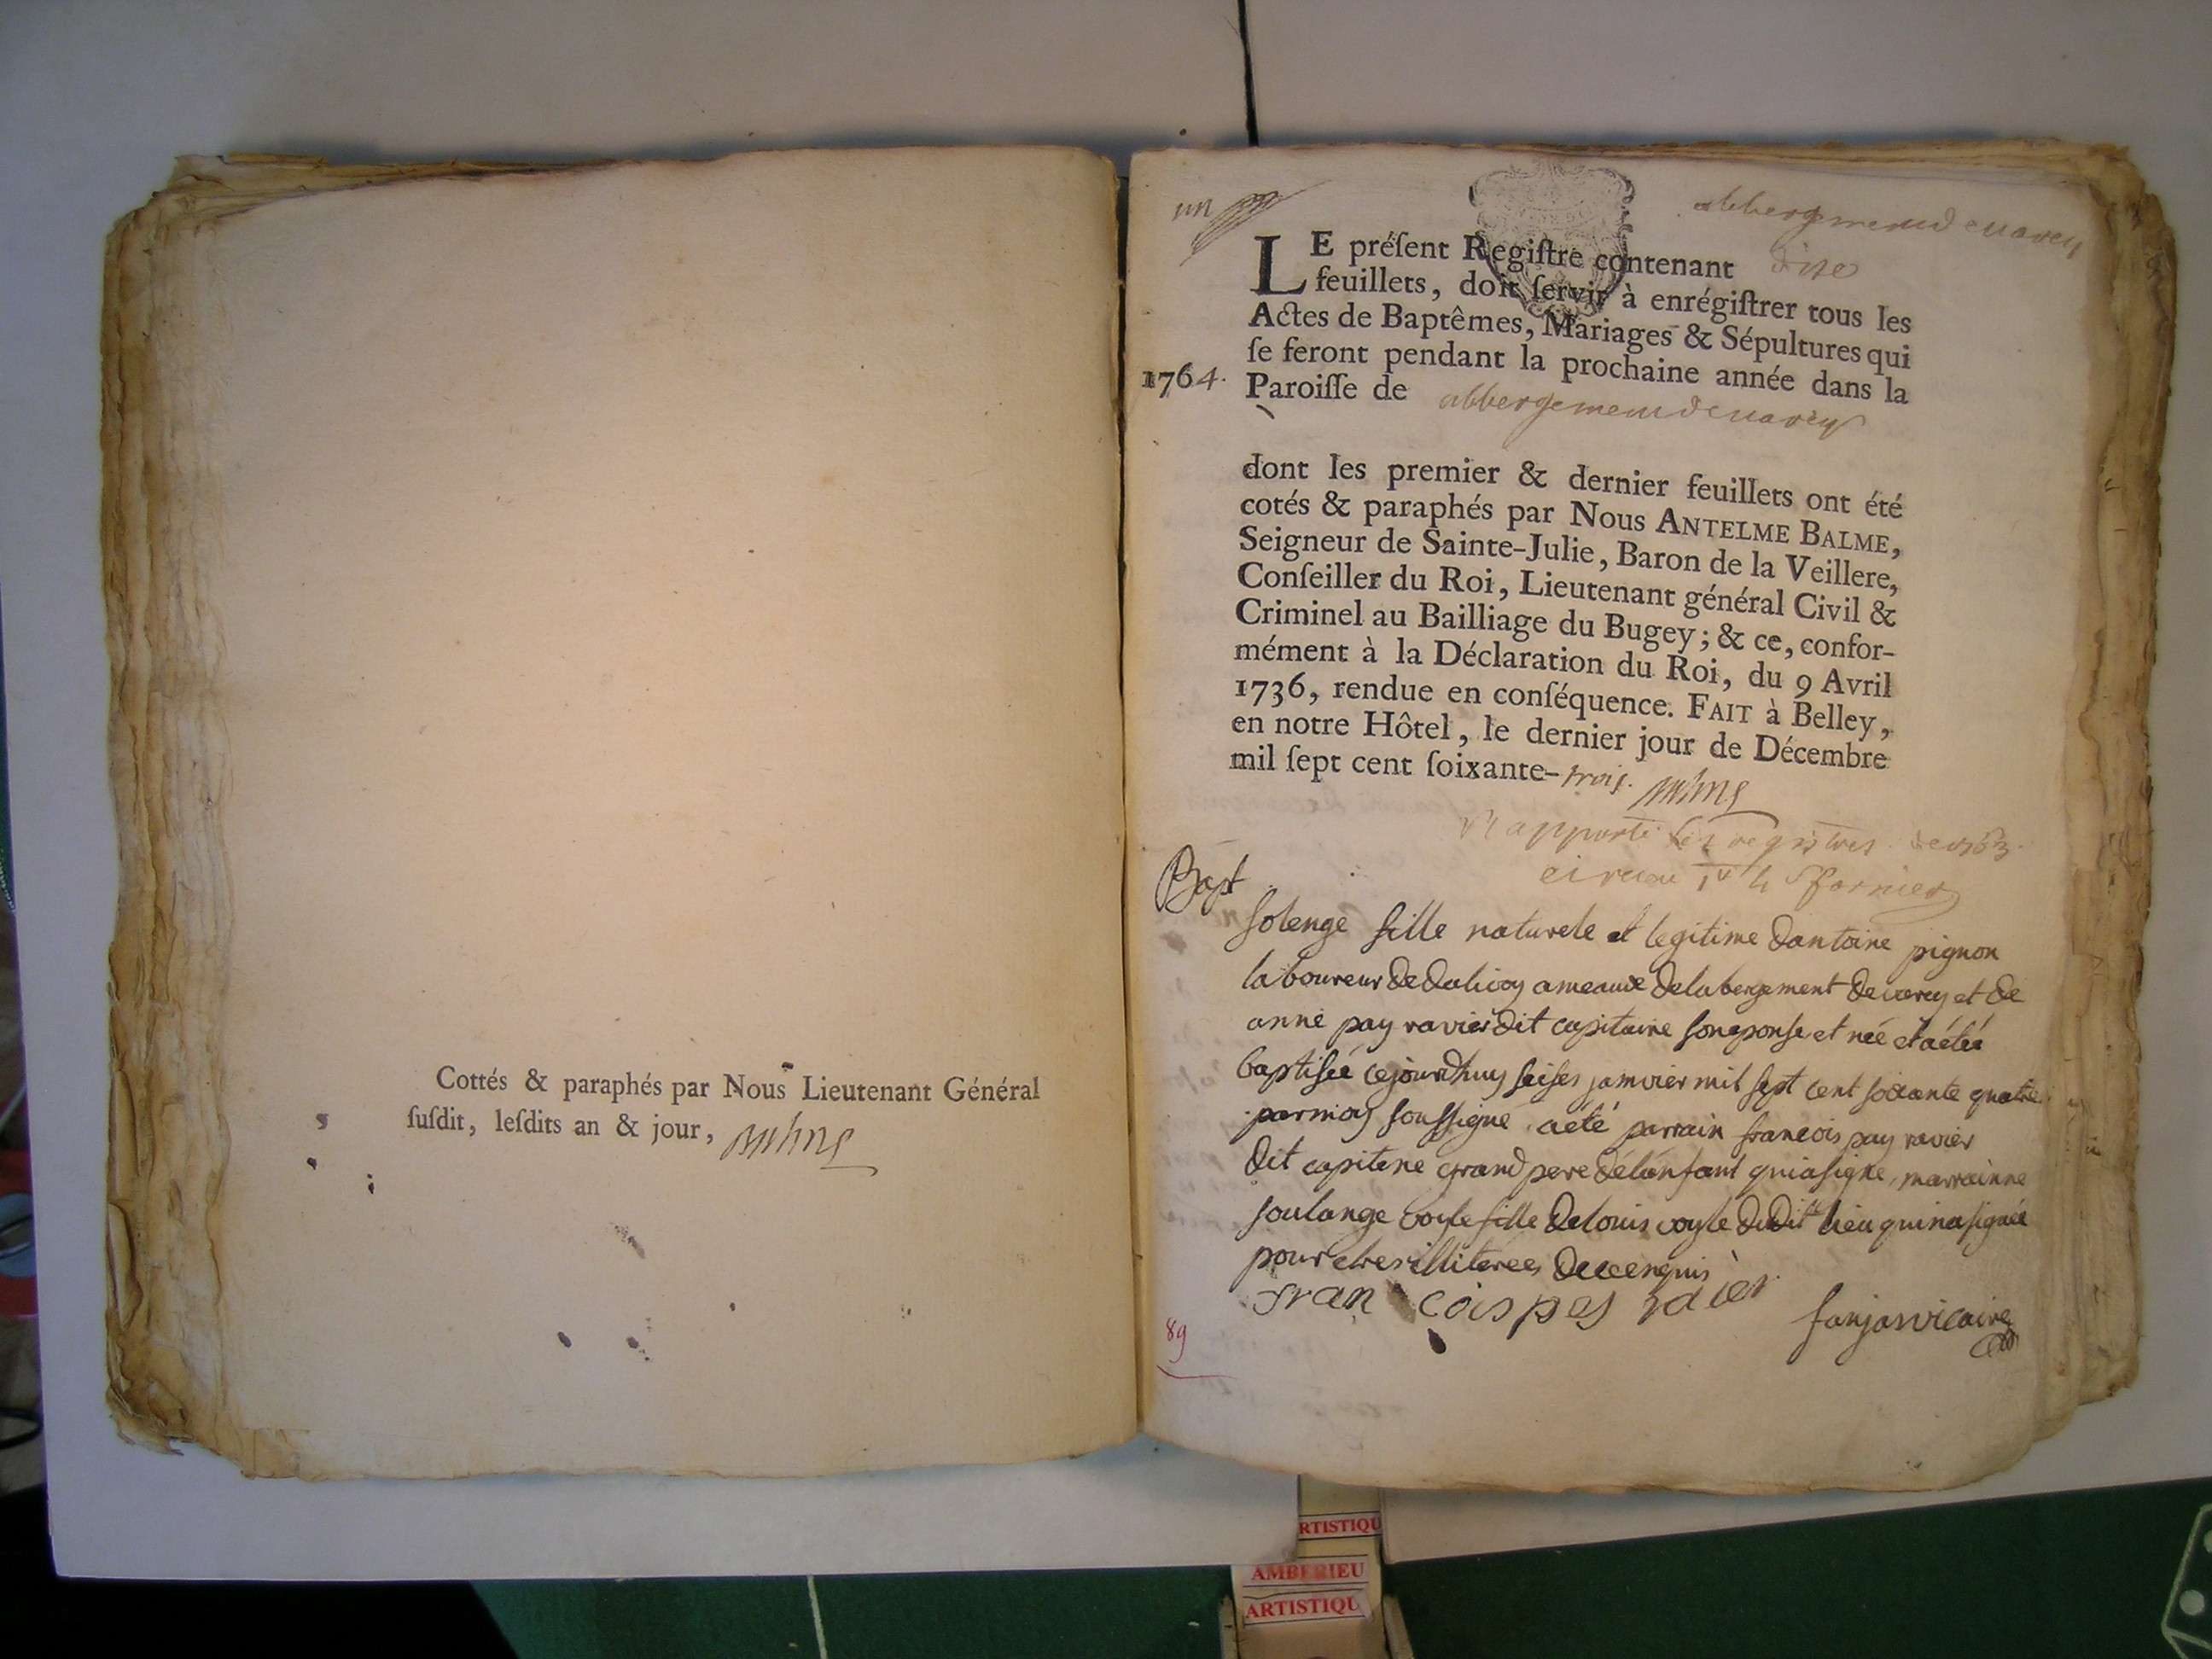 Cottés & paraphés par Nous Lieutenant Général
ſuſdit, leſdits an & jour,
un
LE préſent Regiſtre contenant dix
feuillets, doit ſervir à enrégiſtrer tous les
Actes de Baptêmes, Mariages & Sépultures qui
ſe feront pendant la prochaine année dans la
1764. Paroiſſe de abbergement de varey
dont les premier & dernier feuillets ont été
cotés & paraphés par Nous ANTELME BALME,
Seigneur de Sainte-Julie, Baron de la Veillere,
Conſeiller du Roi, Lieutenant général Civil &
Criminel au Bailliage du Bugey; & ce, confor-
mément à la Déclaration du Roi, du 9 Avril
1736, rendue en conſéquence. FAIT à Belley,
en notre Hôtel, le dernier jour de Décembre
mil ſept cent ſoixante-trois.
Rapporté les registres de 1763.
Bapt
solenge fille naturele et legitime dantoine pignon
laboureur de ameaux delabergement de varey et de
anne pay ravier dit capitaine son eponse et née et aétéé
baptiséé cejourdhuy seises janvier mil sept cent soixante quatre
par moy soussigné. aété parrain francois pay ravier
dit capitene grand pere délénfant qui a signe, marrainne
soulange fille de louis dudit lieu qui na signéé
pour etres illiterees
fran cois pey ravier
vicaire
89
RTISTIQU
AMBERIEU
ARTISTIQU